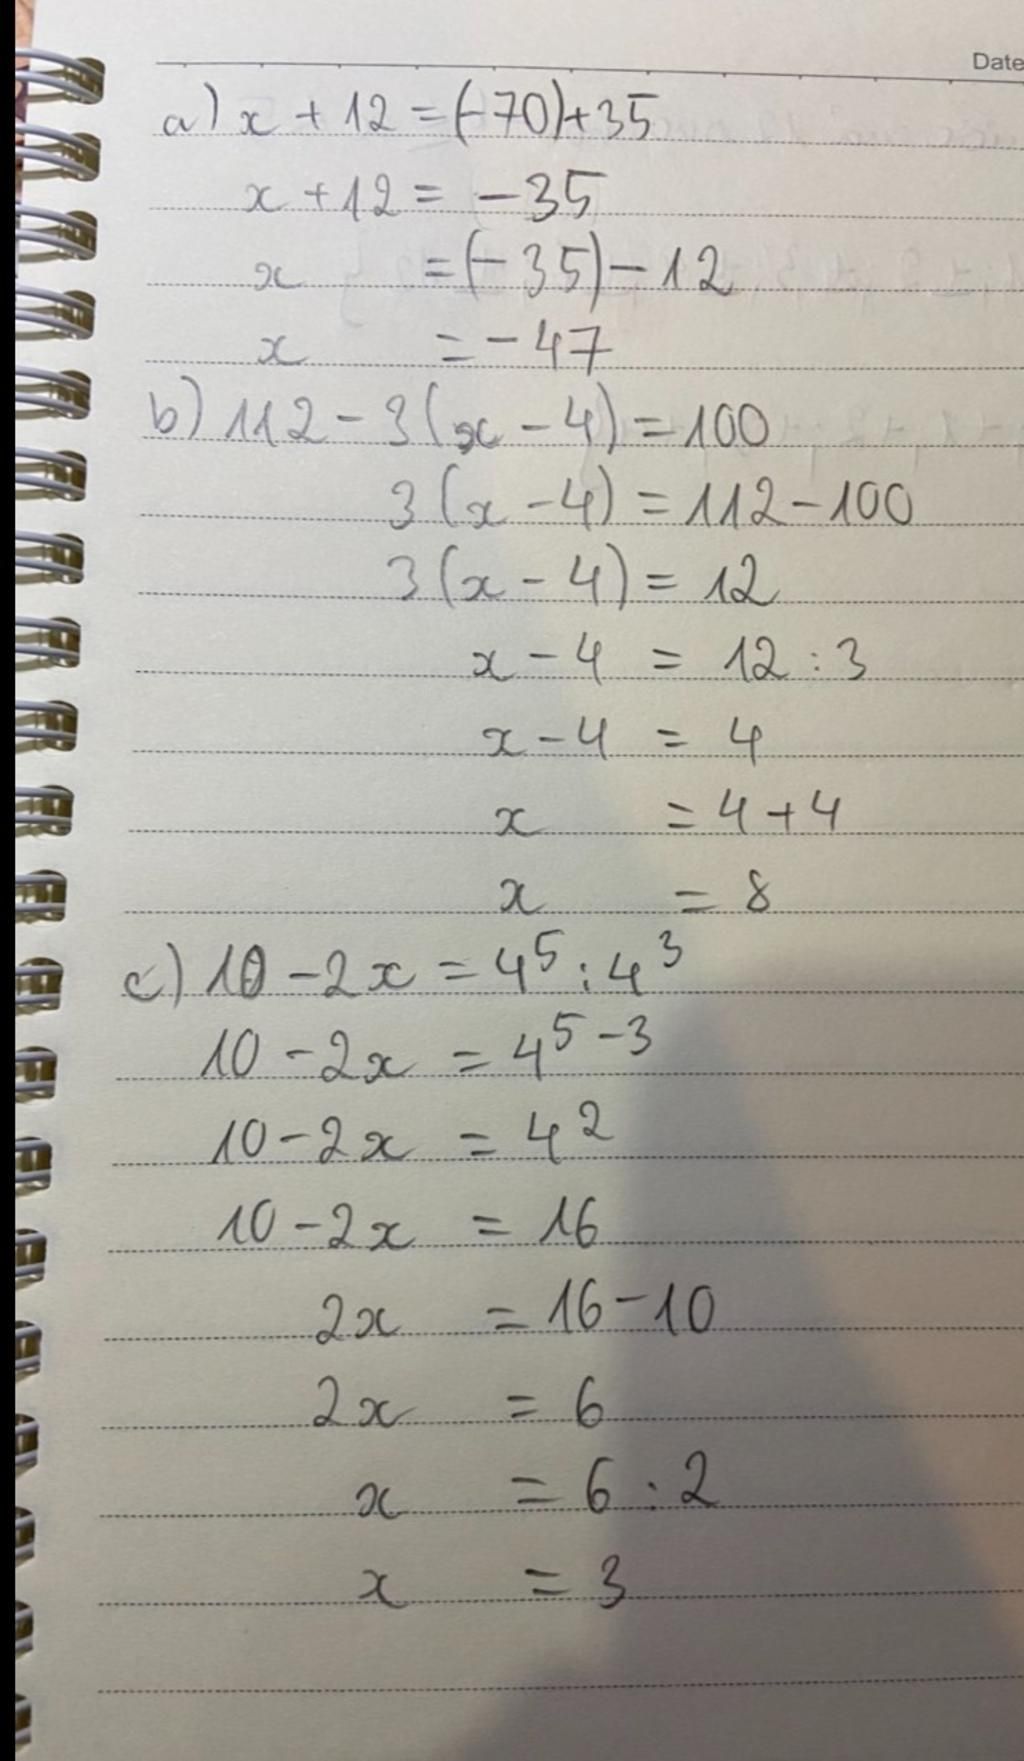 Date
a) x + 12 = (-70) + 35
x + 12 = -35
x = (-35) - 12
x = -47
b) 112 - 3(x - 4) = 100
3(x - 4) = 112 - 100
3(x - 4) = 12
x - 4 = 12 : 3
x - 4 = 4
x = 4 + 4
x = 8
c) 10 - 2x = 4⁵ : 4³
10 - 2x = 4⁵⁻³
10 - 2x = 4²
10 - 2x = 16
2x = 16 - 10
2x = 6
x = 6 : 2
x = 3